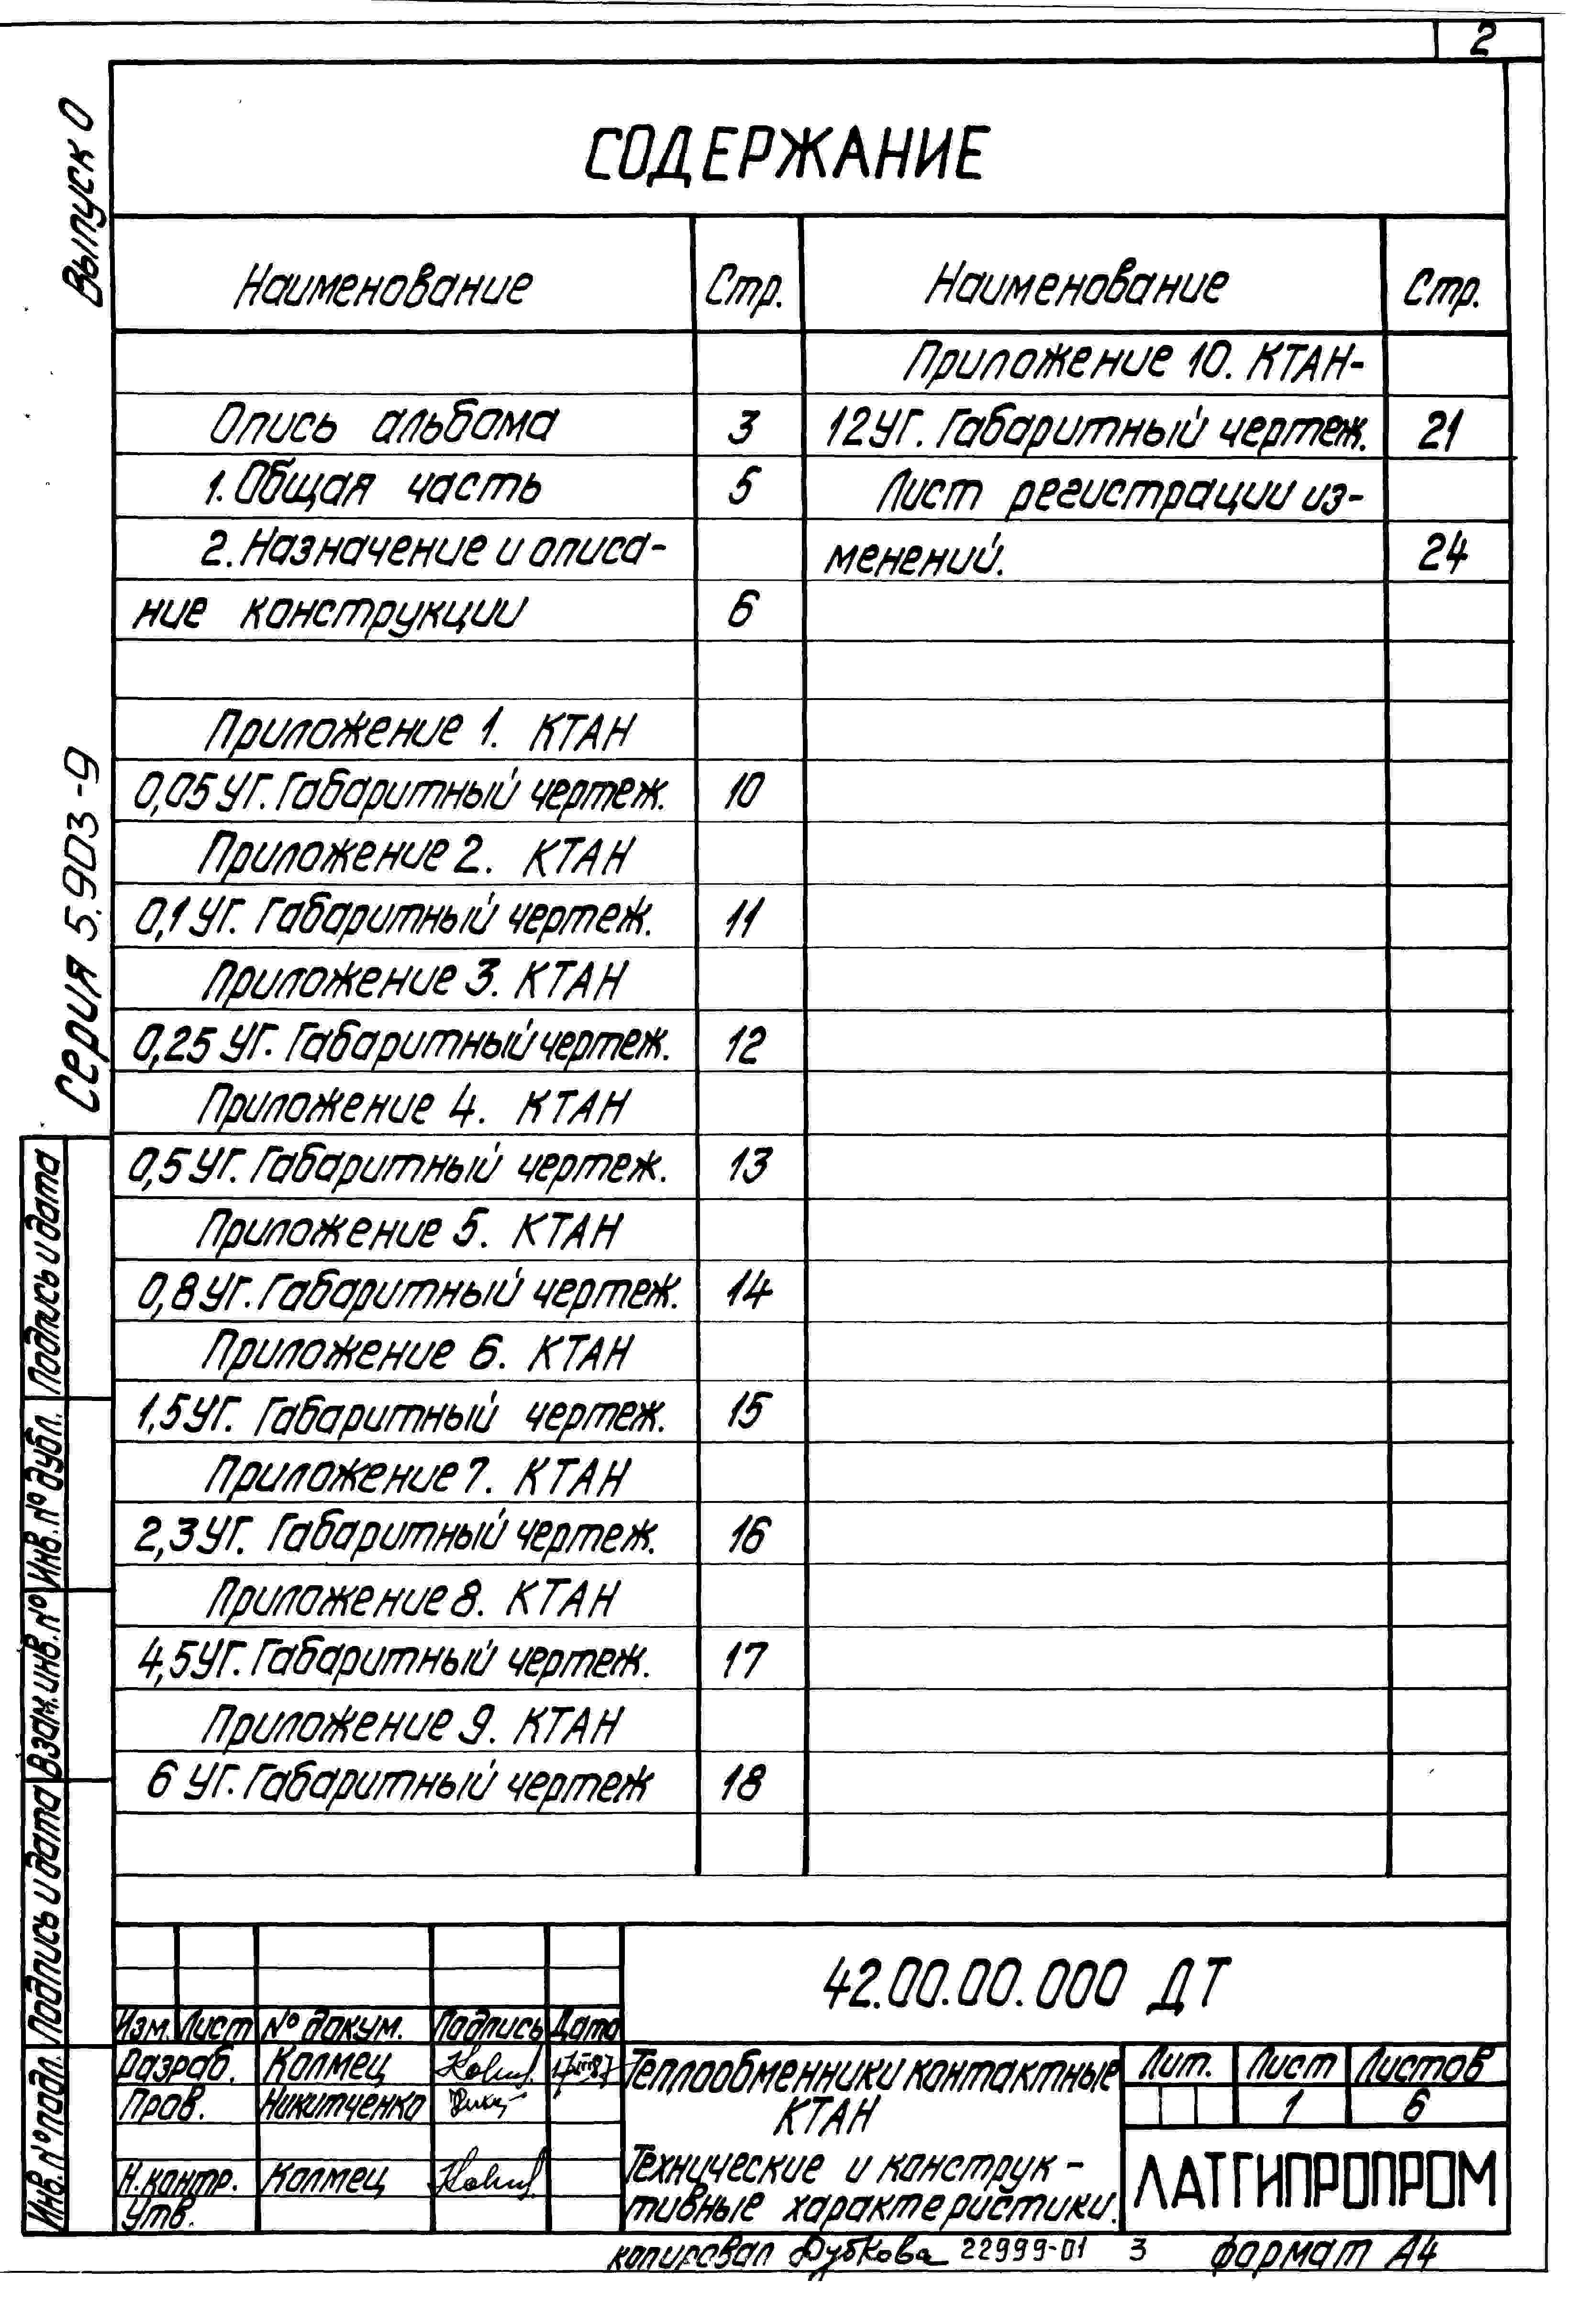 2
Выпуск 0
Серия 5.903-9
СОДЕРЖАНИЕ
Наименование Стр. Наименование Стр.
Опись альбома 3
1. Общая часть 5
2. Назначение и описа-
ние конструкции 6
Приложение 1. КТАН
0,05 УГ. Габаритный чертеж. 10
Приложение 2. КТАН
0,1 УГ. Габаритный чертеж. 11
Приложение 3. КТАН
0,25 УГ. Габаритный чертеж. 12
Приложение 4. КТАН
0,5 УГ. Габаритный чертеж. 13
Приложение 5. КТАН
0,8 УГ. Габаритный чертеж. 14
Приложение 6. КТАН
1,5 УГ. Габаритный чертеж. 15
Приложение 7. КТАН
2,3 УГ. Габаритный чертеж. 16
Приложение 8. КТАН
4,5 УГ. Габаритный чертеж. 17
Приложение 9. КТАН
6 УГ. Габаритный чертеж 18
Приложение 10. КТАН-
12 УГ. Габаритный чертеж. 21
Лист регистрации из-
менений. 24
Подпись и дата
Инв. № дубл.
Взам. инв. №
Подпись и дата
Инв. № подл.
42.00.00.000 ДТ
Изм. Лист № докум. Подпись Дата
Разраб. Колмец
Пров. Никитченко
Н.контр. Колмец
Утв.
Теплообменники контактные
КТАН
Технические и конструк-
тивные характеристики.
Лит. Лист Листов
1 6
ЛАТГИПРОПРОМ
копировал Дубкова 22999-01 3 формат А4